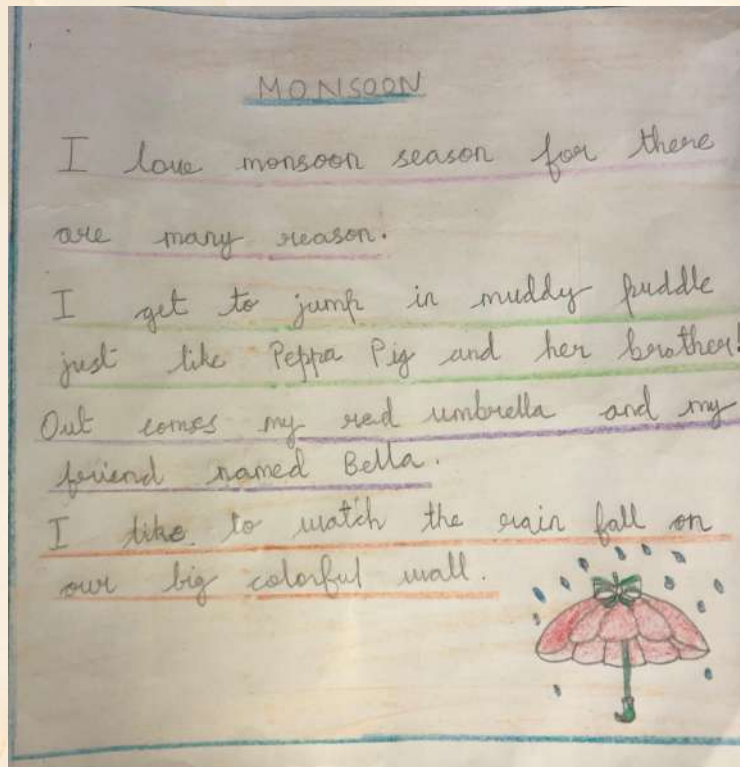 MONSOON
I love monsoon season for there
are many reason.
I get to jump in muddy puddle
just like Peppa Pig and her brother!
Out comes my red umbrella and my
friend named Bella.
I like to watch the rain fall on
our big colorful wall.